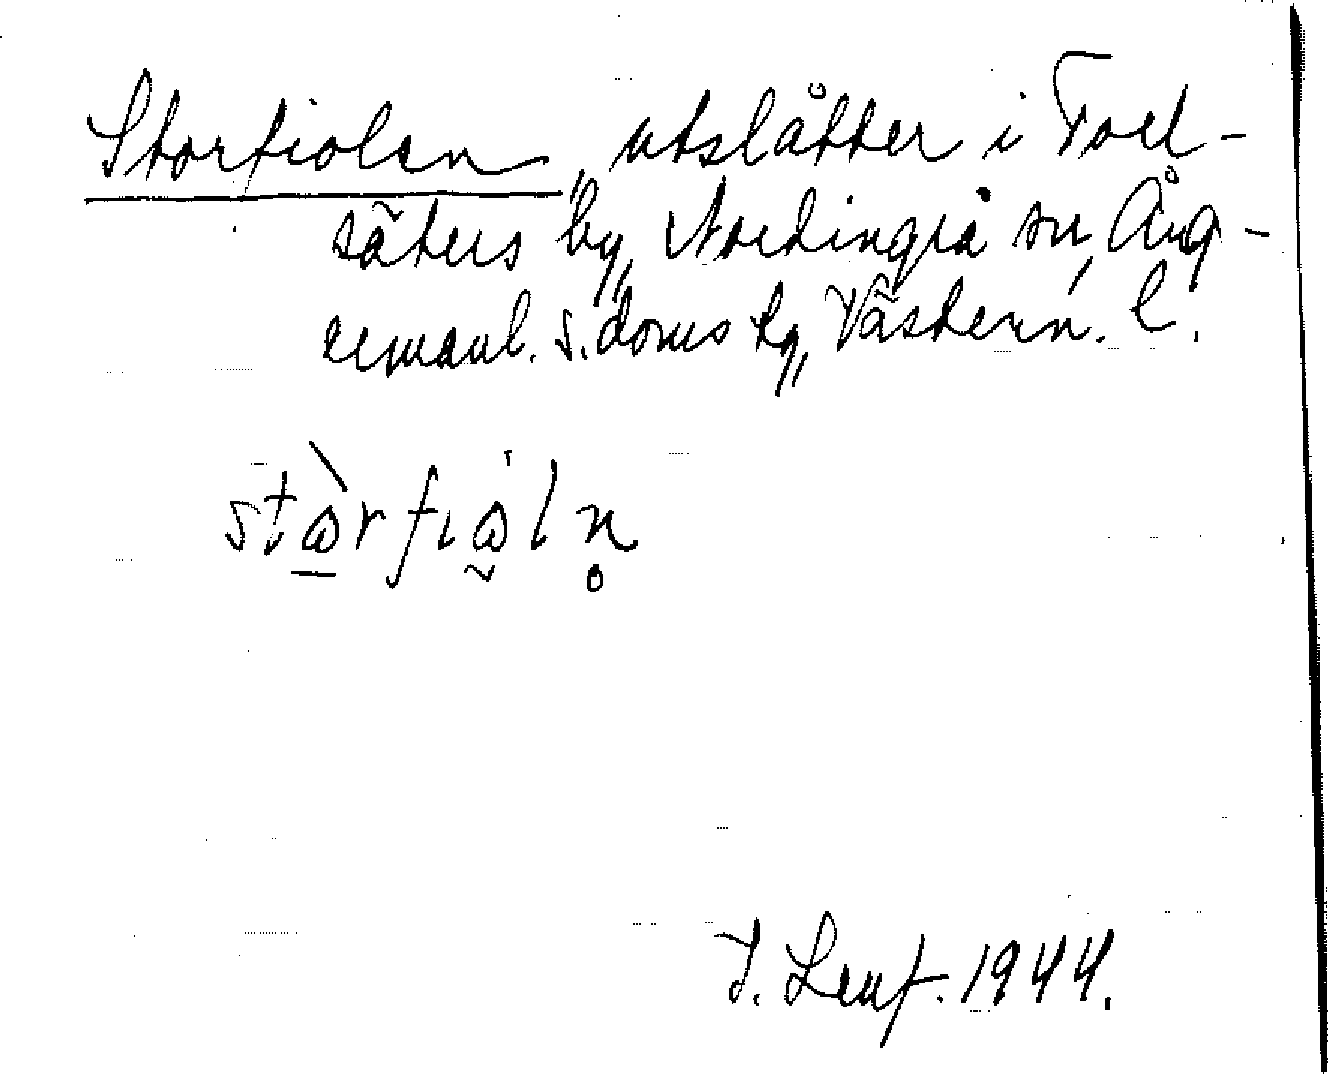 Storfiolen, utslåtter i Tord-
säters by, Nordingrå sn, Ång-
ermanl. s. doms hg, Västern. l.
stòrfiòln̥
J. Leuf. 1944.